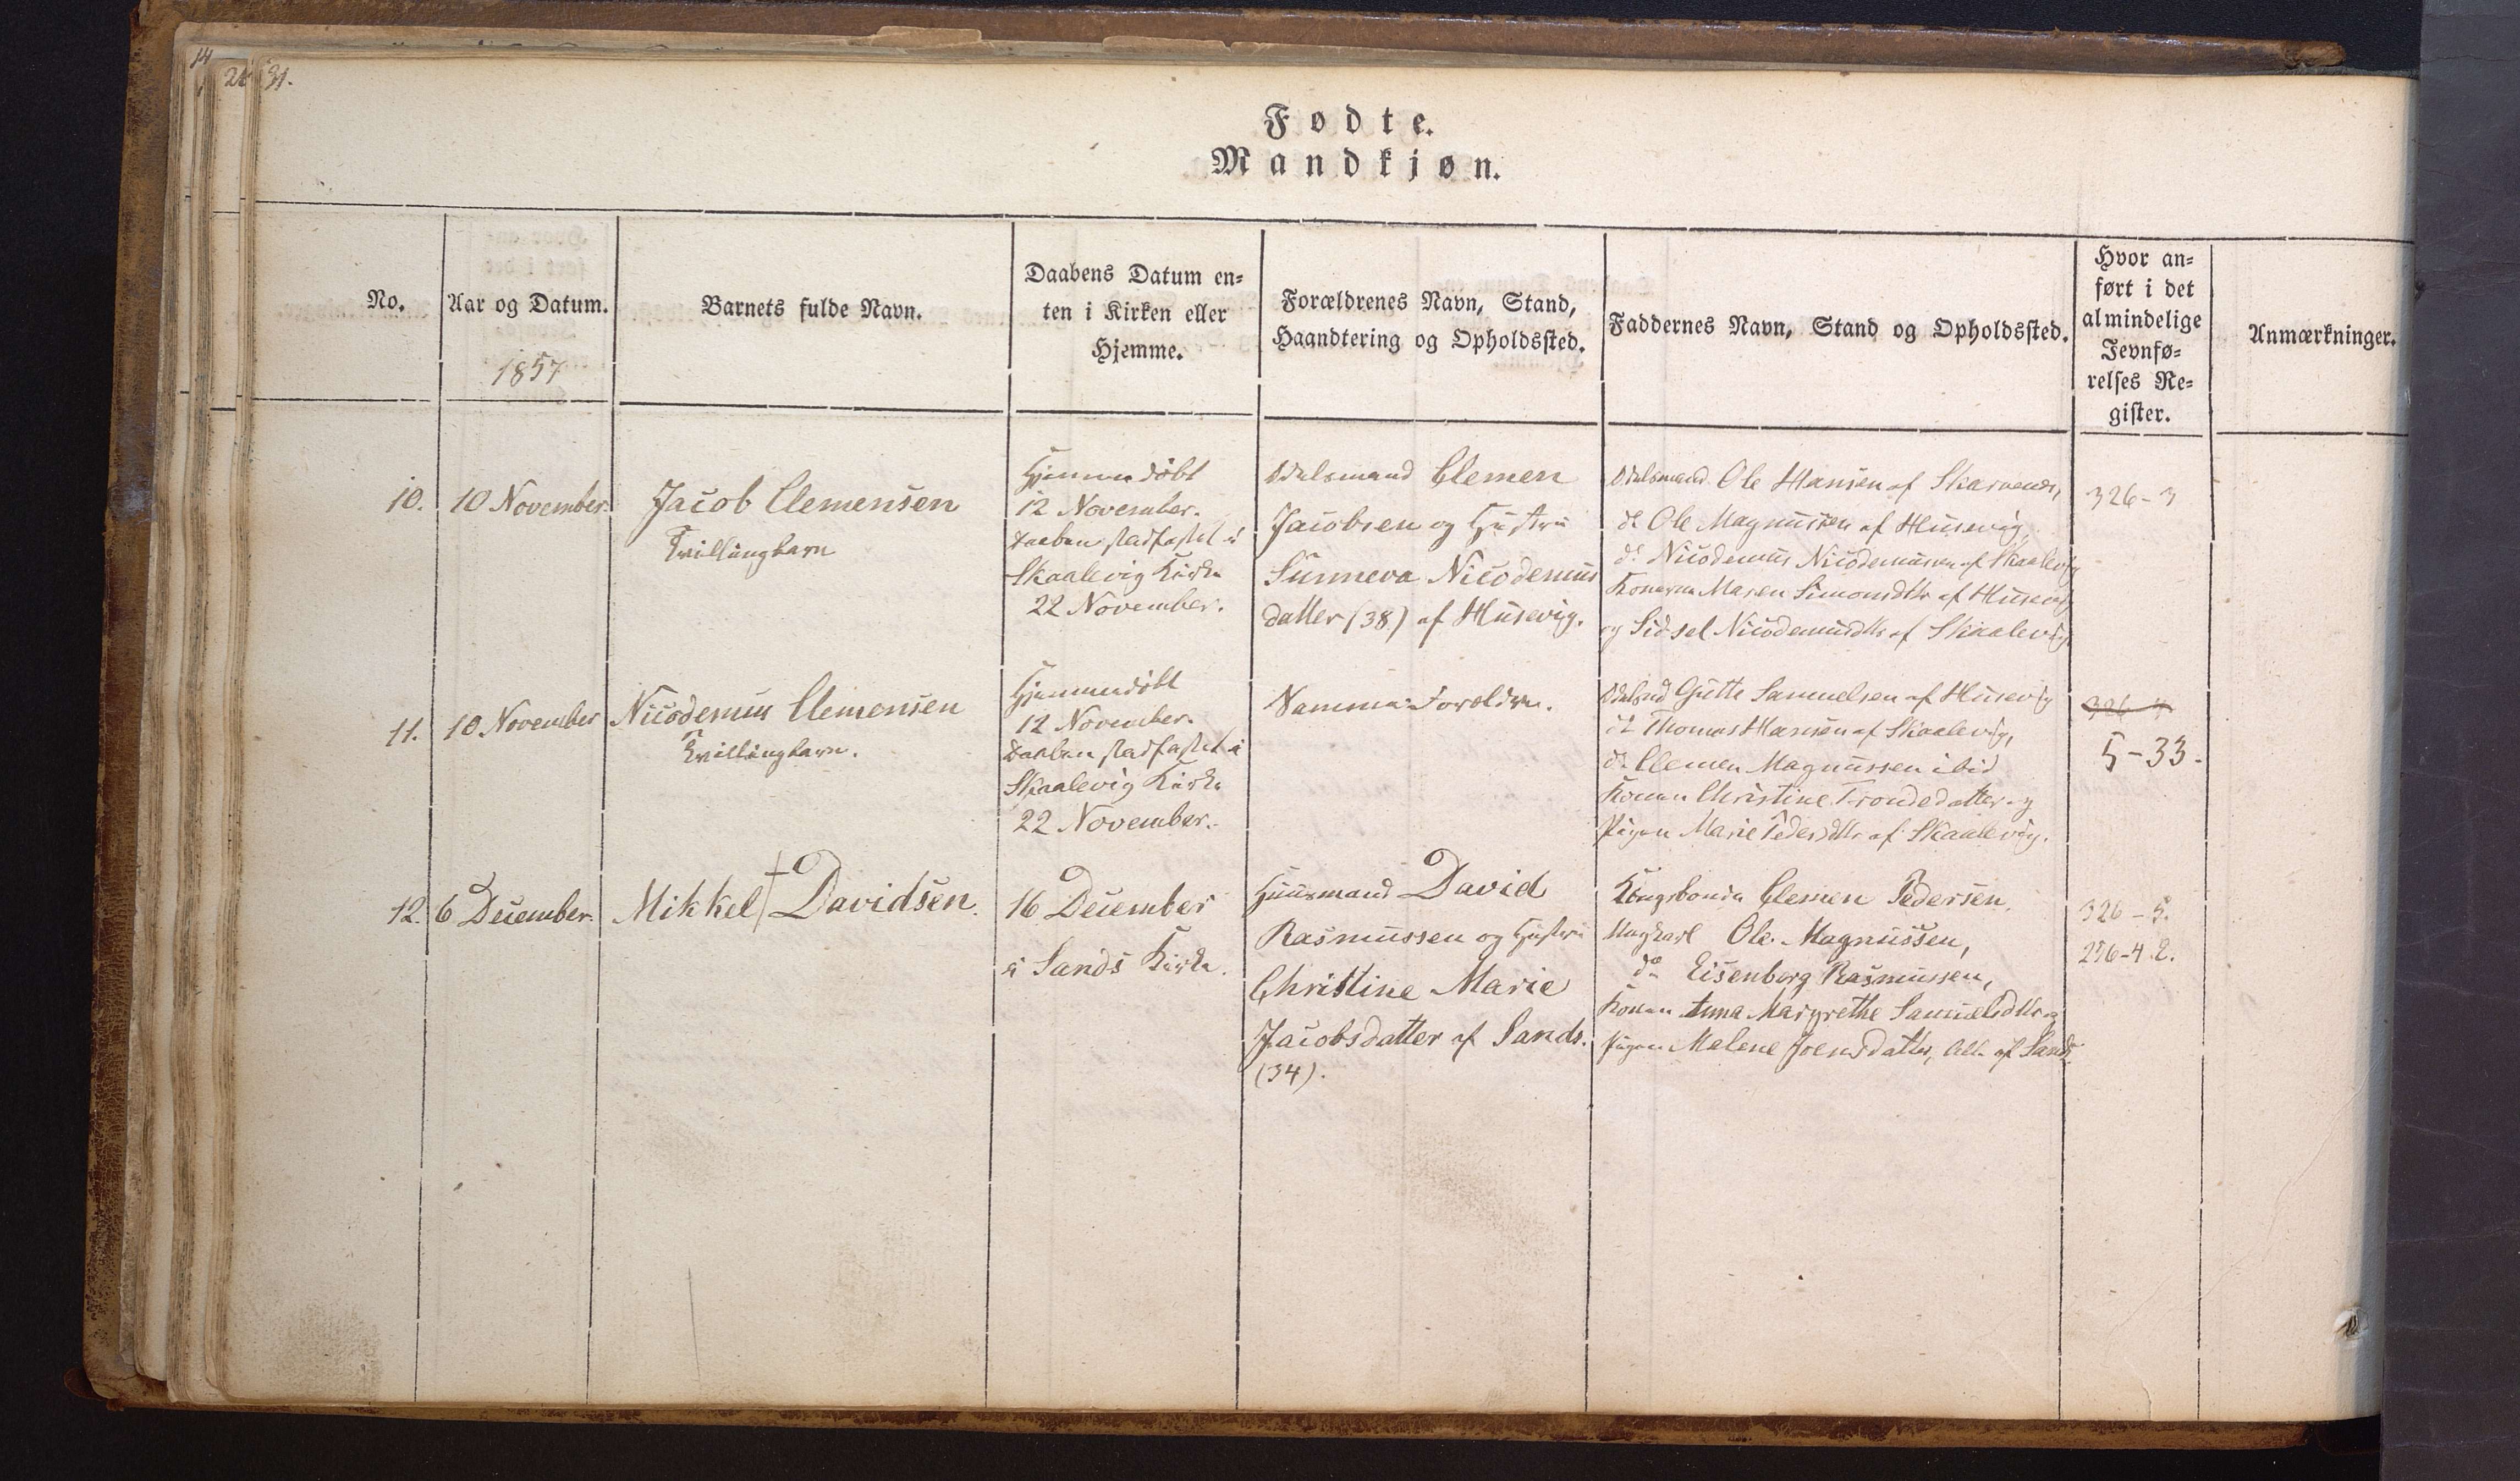 14
31.
Fødte.
Mandkjøn.
No.
Aar og Datum.
1857
Barnets fulde Navn.
Daabens Datum en=
ten i Kirken eller
Hjemme.
Forældrenes Navn, Stand,
Haandtering og Opholdssted.
Faddernes Navn, Stand og Opholdssted.
Hvor an=
ført i det
almindelige
Jevnfø=
relses Re=
gister.
Anmærkninger.
10.
10 November.
Jacob Clemensen
Tvillingbarn
Hjemmedøbt
12 November.
Daaben stadfæstet i
Skaalevig Kirke
22 November.
Odelsmand Clemen
Jacobsen og Hustru
Sunneva Nicodemus
datter (38) af Husevig.
Odelsmand Ole Hansen af Skarvenæs,
do Ole Magnussen af Husevig,
do Nicodemus Nicodemussen af Skaalevig
Konerne Maren Simonsdtr af Husevig
og Sidsel Nicodemusdtr af Skaalevig.
326-3
11.
10 November
Nicodemus Clemensen
Tvillingbarn.
Hjemmedøbt
12 November.
Daaben stadfæstet i
Skaalevig Kirke
22 November.
Samme Forældre.
Gutte Samuelsen af Husevig
do Thomas Hansen af Skaalevig,
do Clemen Magnussen ibid
Konen Christine Trondedatter og
Pigen Marie Pedersdtr af Skaalevig.
326-4
5-33.
12.
6 December.
Mikkel Davidsen.
16 December
i Sands Kirke.
Huusmand David
Rasmussen og Hustru
Christine Marie
Jacobsdatter af Sands.
(34).
Kongsbonde Clemen Pedersen,
Ungkarl Ole Magnussen,
do Eisenborg Rasmussen,
Konen Anna Margrethe Samuelsdtr og
Pigen Malene Joensdatter, alle af Sands.
326-5.